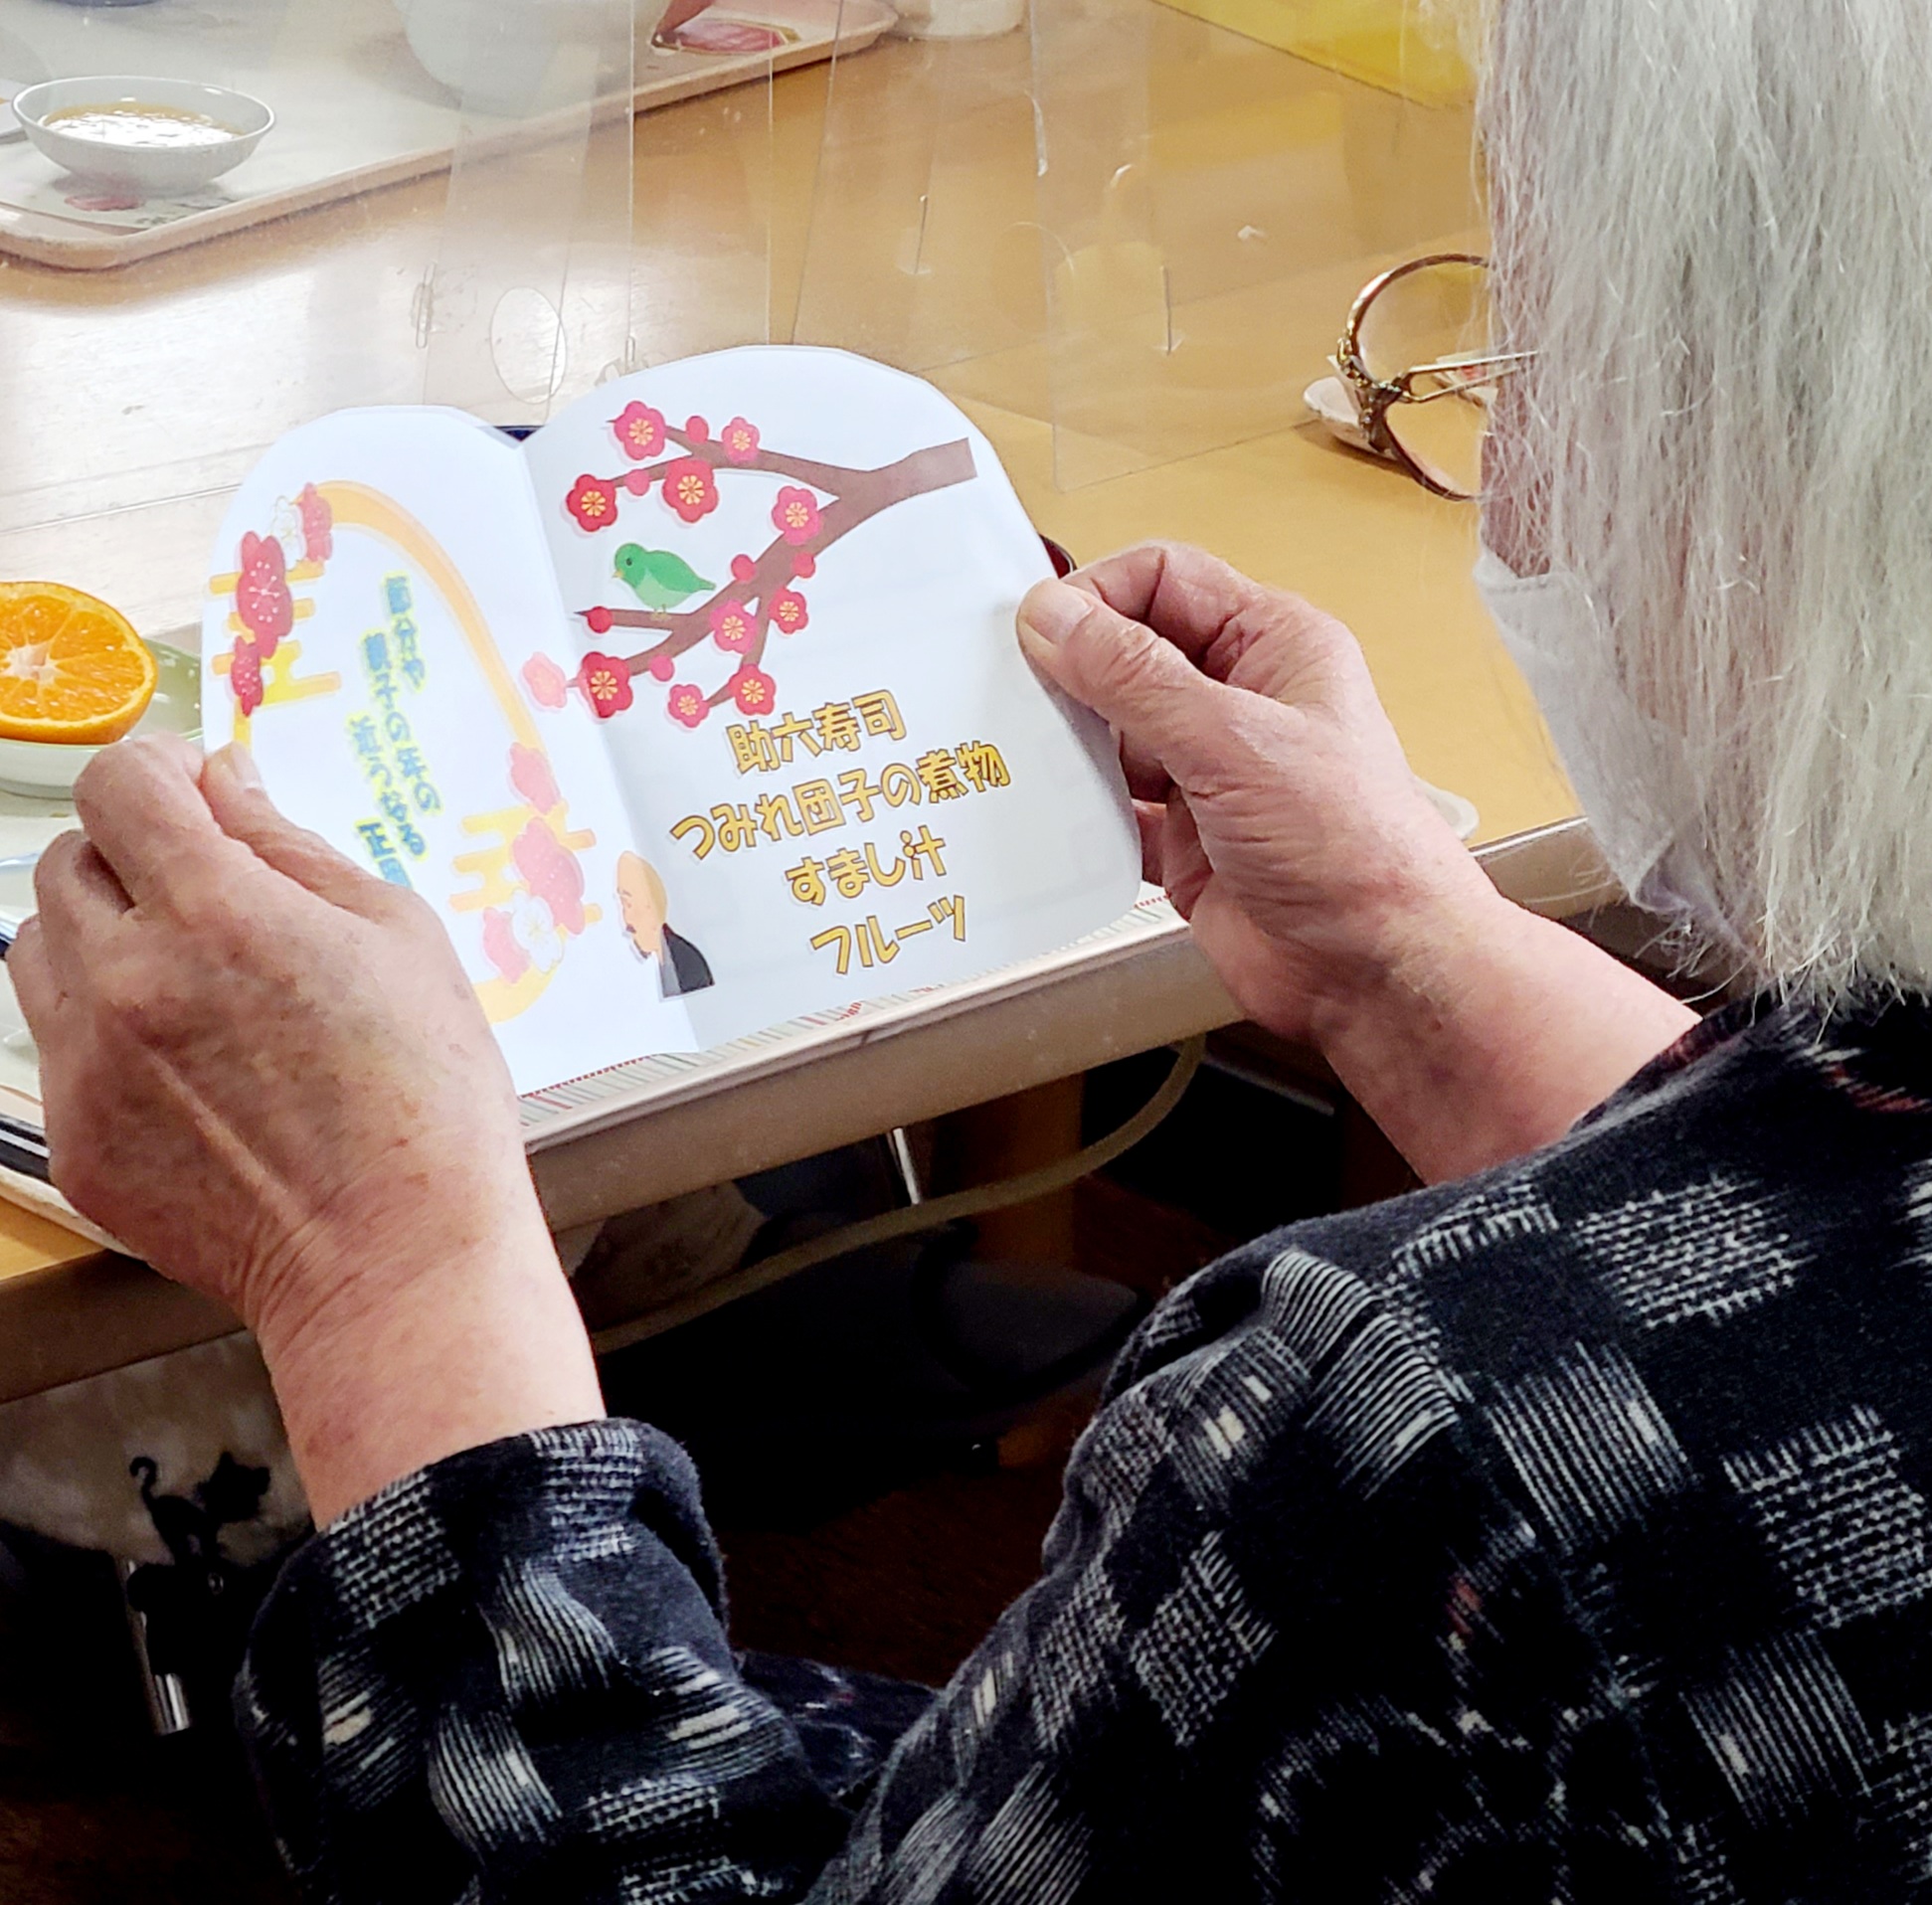 節分や
親子の年の
近うなる
正岡
助六寿司
つみれ団子の煮物
すまし汁
フルーツ